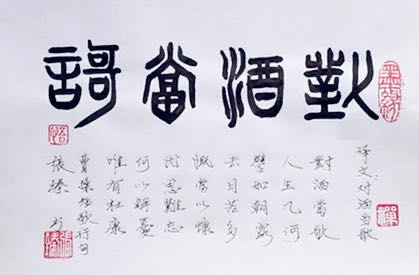 對酒當謌
译文:对酒当歌
對酒當歌
人生几何
譬如朝露
去日苦多
慨當以慷
思難忘
何以解憂
唯有杜康
曹操短歌行句
張臻